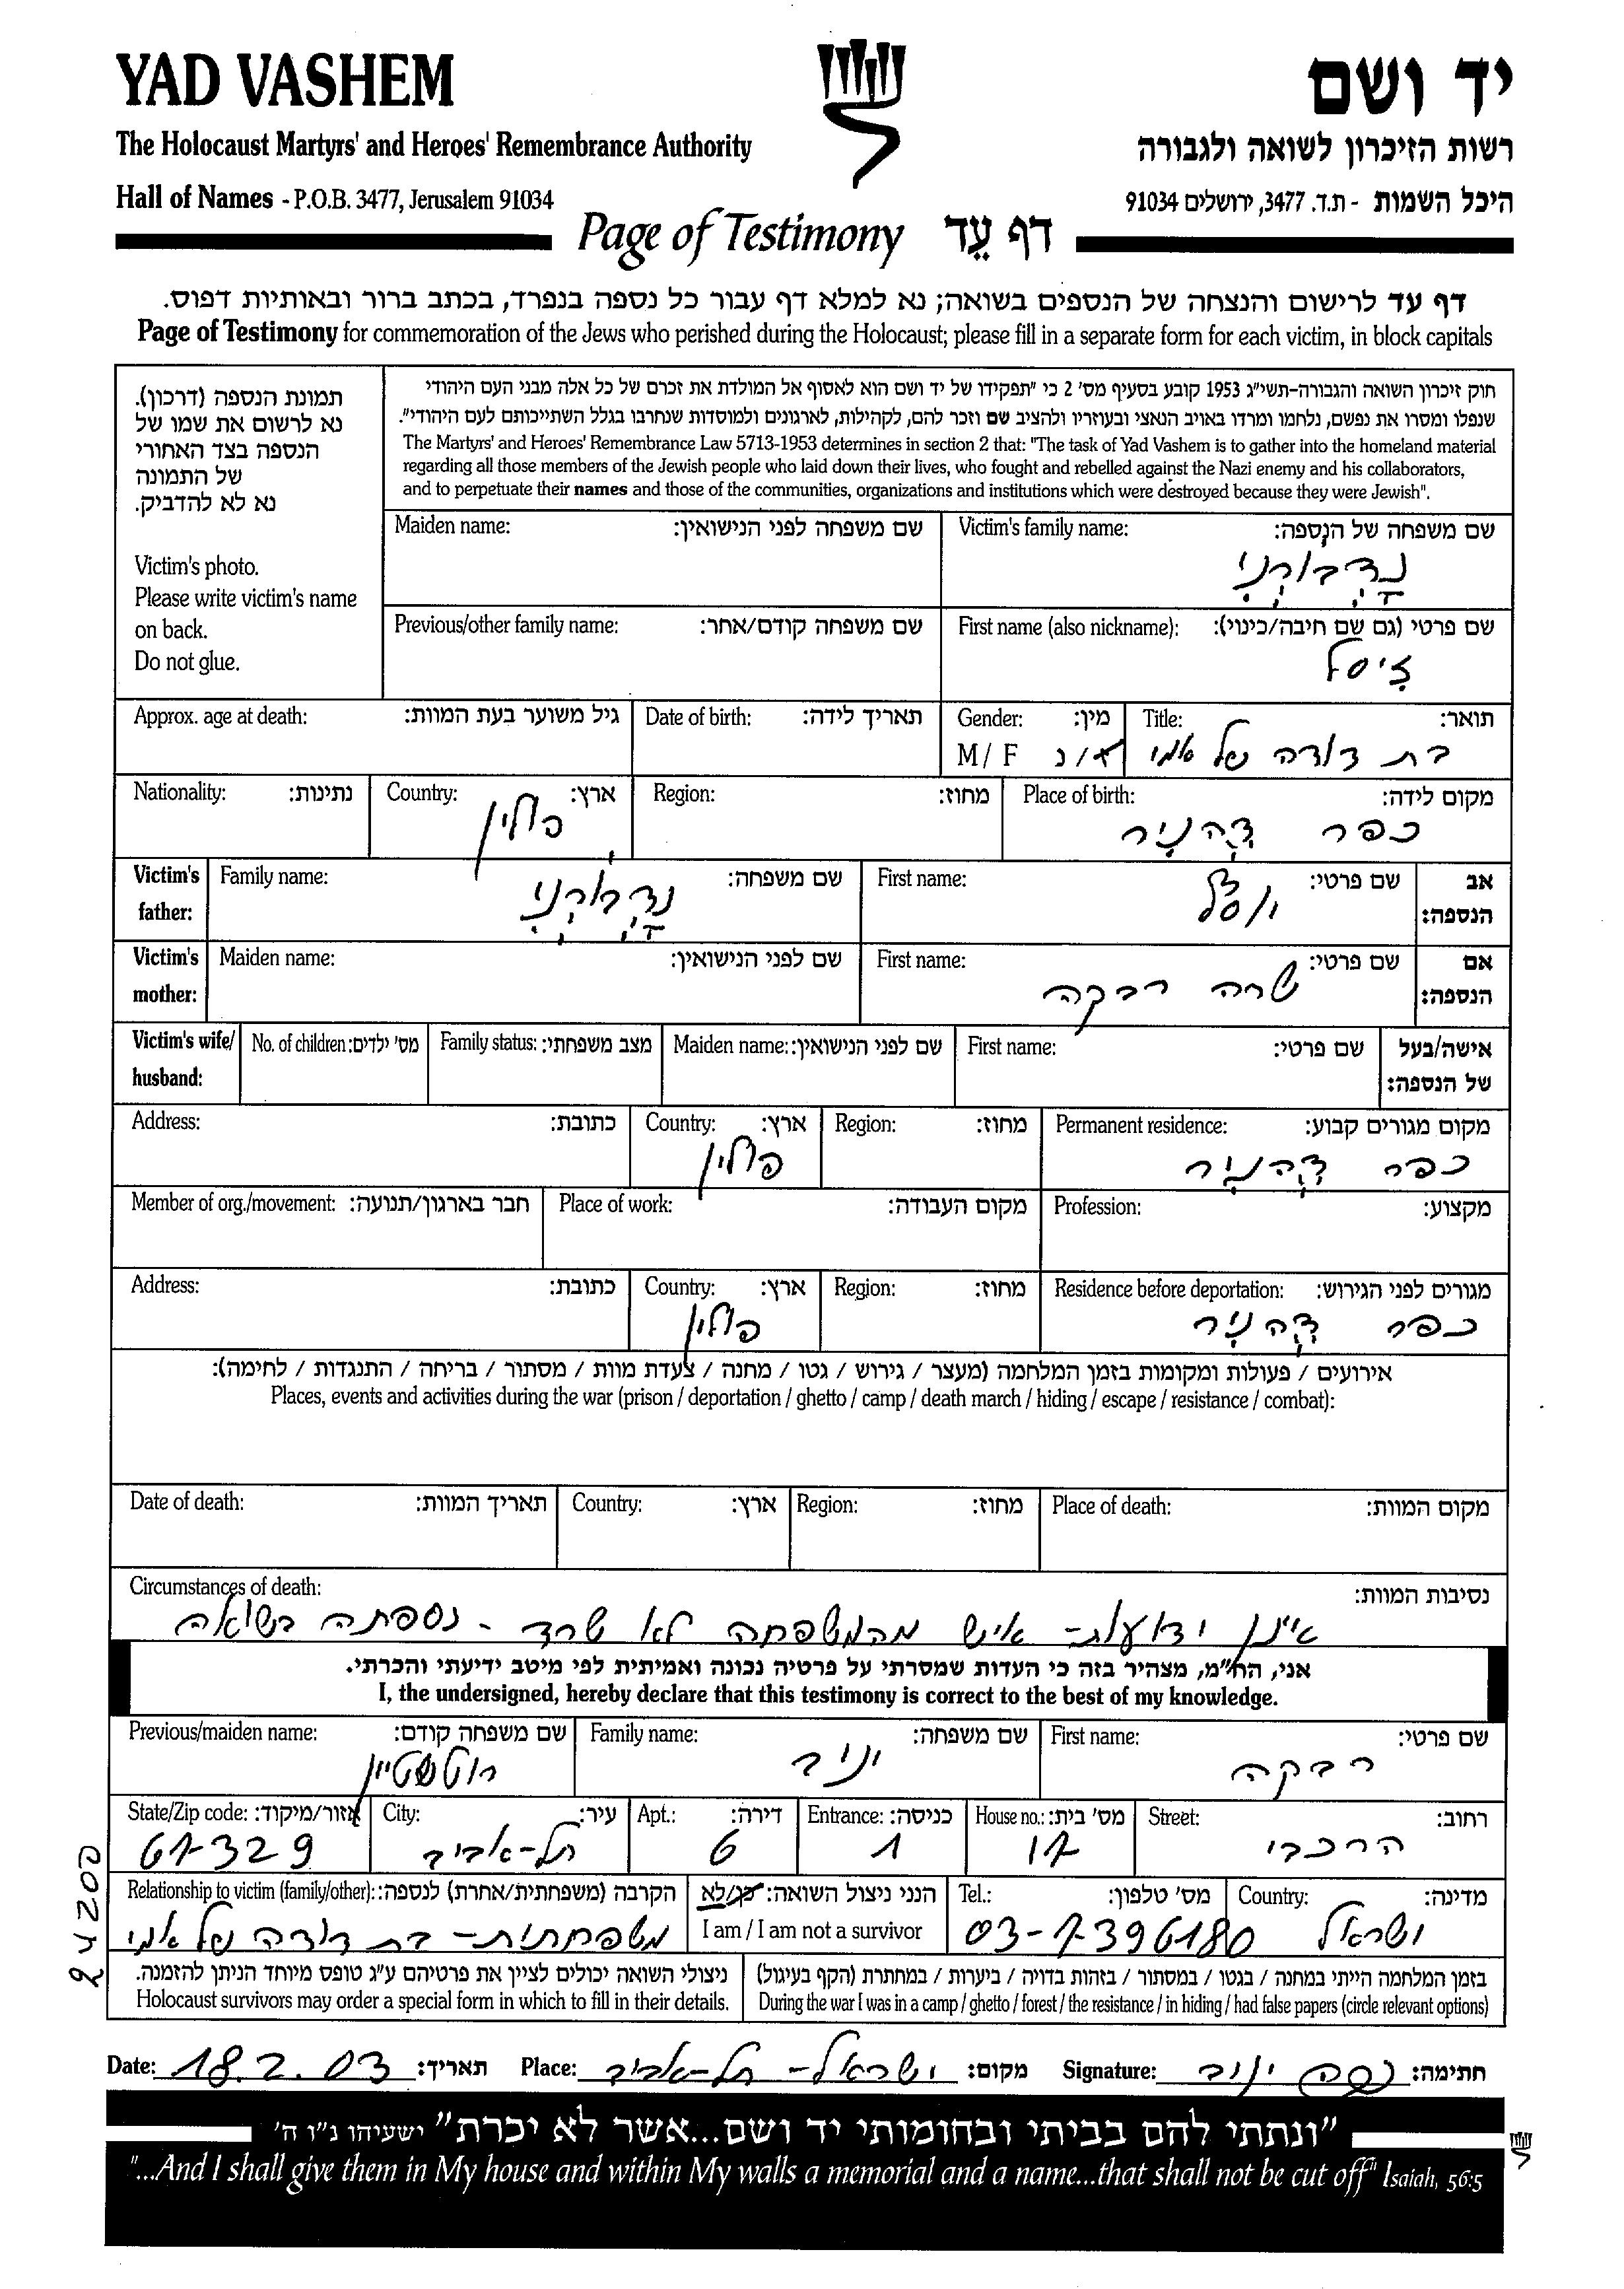 YAD VASHEM
יד ושם
The Holocaust Martyrs' and Heroes' Remembrance Authority
רשות הזיכרון לשואה ולגבורה
Hall of Names - P.O.B. 3477, Jerusalem 91034
היכל השמות - ת.ד. 3477, ירושלים 91034
Page of Testimony דף עֵד
דף עד לרישום והנצחה של הנספים בשואה; נא למלא דף עבור כל נספה בנפרד, בכתב ברור ובאותיות דפוס.
Page of Testimony for commemoration of the Jews who perished during the Holocaust; please fill in a separate form for each victim, in block capitals
חוק זיכרון השואה והגבורה-תשי"ג 1953 קובע בסעיף מס' 2 כי "תפקידו של יד ושם הוא לאסוף אל המולדת את זכרם של כל אלה מבני העם היהודי
שנפלו ומסרו את נפשם, נלחמו ומרדו באויב הנאצי ובעוזריו ולהציב שם וזכר להם, לקהילות, לארגונים ולמוסדות שנחרבו בגלל השתייכותם לעם היהודי".
The Martyrs' and Heroes' Remembrance Law 5713-1953 determines in section 2 that: "The task of Yad Vashem is to gather into the homeland material
regarding all those members of the Jewish people who laid down their lives, who fought and rebelled against the Nazi enemy and his collaborators,
and to perpetuate their names and those of the communities, organizations and institutions which were destroyed because they were Jewish".
תמונת הנספה (דרכון).
נא לרשום את שמו של
הנספה בצד האחורי
של התמונה
נא לא להדביק.
Victim's photo.
Please write victim's name
on back.
Do not glue.
שם משפחה של הנספה: Victim's family name:
שם משפחה לפני הנישואין: Maiden name:
שם פרטי (גם שם חיבה/כינוי): First name (also nickname):
זיסל
שם משפחה קודם/אחר: Previous/other family name:
תואר: Title:
בת דודה של אמי
מין: Gender:
ז/נ M/F
תאריך לידה: Date of birth:
גיל משוער בעת המוות: Approx. age at death:
מקום לידה: Place of birth:
כפר
מחוז: Region:
ארץ: Country:
פולין
נתינות: Nationality:
אב הנספה: Victim's father:
שם פרטי: First name:
שם משפחה: Family name:
אם הנספה: Victim's mother:
שם פרטי: First name:
שרה רבקה
שם לפני הנישואין: Maiden name:
אישה/בעל של הנספה: Victim's wife/ husband:
שם פרטי: First name:
שם לפני הנישואין: Maiden name:
מצב משפחתי: Family status:
מס' ילדים: No. of children:
מקום מגורים קבוע: Permanent residence:
כפר
מחוז: Region:
ארץ: Country:
פולין
כתובת: Address:
מקצוע: Profession:
מקום העבודה: Place of work:
חבר בארגון/תנועה: Member of org./movement:
מגורים לפני הגירוש: Residence before deportation:
כפר
מחוז: Region:
ארץ: Country:
פולין
כתובת: Address:
אירועים / פעולות ומקומות בזמן המלחמה (מעצר / גירוש / גטו / מחנה / צעדת מוות / מסתור / בריחה / התנגדות / לחימה):
Places, events and activities during the war (prison / deportation / ghetto / camp / death march / hiding / escape / resistance / combat):
מקום המוות: Place of death:
מחוז: Region:
ארץ: Country:
תאריך המוות: Date of death:
נסיבות המוות: Circumstances of death:
אינן ידועות - איש מהמשפחה לא שרד - נספתה בשואה
אני, הח"מ, מצהיר בזה כי העדות שמסרתי על פרטיה נכונה ואמיתית לפי מיטב ידיעתי והכרתי.
I, the undersigned, hereby declare that this testimony is correct to the best of my knowledge.
שם פרטי: First name:
רבקה
שם משפחה: Family name:
יניב
שם משפחה קודם: Previous/maiden name:
רוטשטיין
רחוב: Street:
הרכבי
מס' בית: House no.:
17
כניסה: Entrance:
1
דירה: Apt.:
6
עיר: City:
תל-אביב
אזור/מיקוד: State/Zip code:
67329
מדינה: Country:
ישראל
מס' טלפון: Tel.:
03-7396180
הנני ניצול השואה: כן/לא
I am / I am not a survivor
הקרבה (משפחתית/אחרת) לנספה: Relationship to victim (family/other):
משפחתית - בת דודה של אמי
24200
בזמן המלחמה הייתי במחנה / בגטו / במסתור / בזהות בדויה / ביערות / במחתרת (הקף בעיגול)
During the war I was in a camp / ghetto / forest / the resistance / in hiding / had false papers (circle relevant options)
ניצולי השואה יכולים לציין את פרטיהם ע"ג טופס מיוחד הניתן להזמנה.
Holocaust survivors may order a special form in which to fill in their details.
Date: 18.2.03 תאריך: Place: ישראל - תל-אביב מקום: Signature: רבקה יניב חתימה:
"ונתתי להם בביתי ובחומותי יד ושם...אשר לא יכרת" ישעיהו נ"ו ה'
"...And I shall give them in My house and within My walls a memorial and a name...that shall not be cut off" Isaiah, 56:5